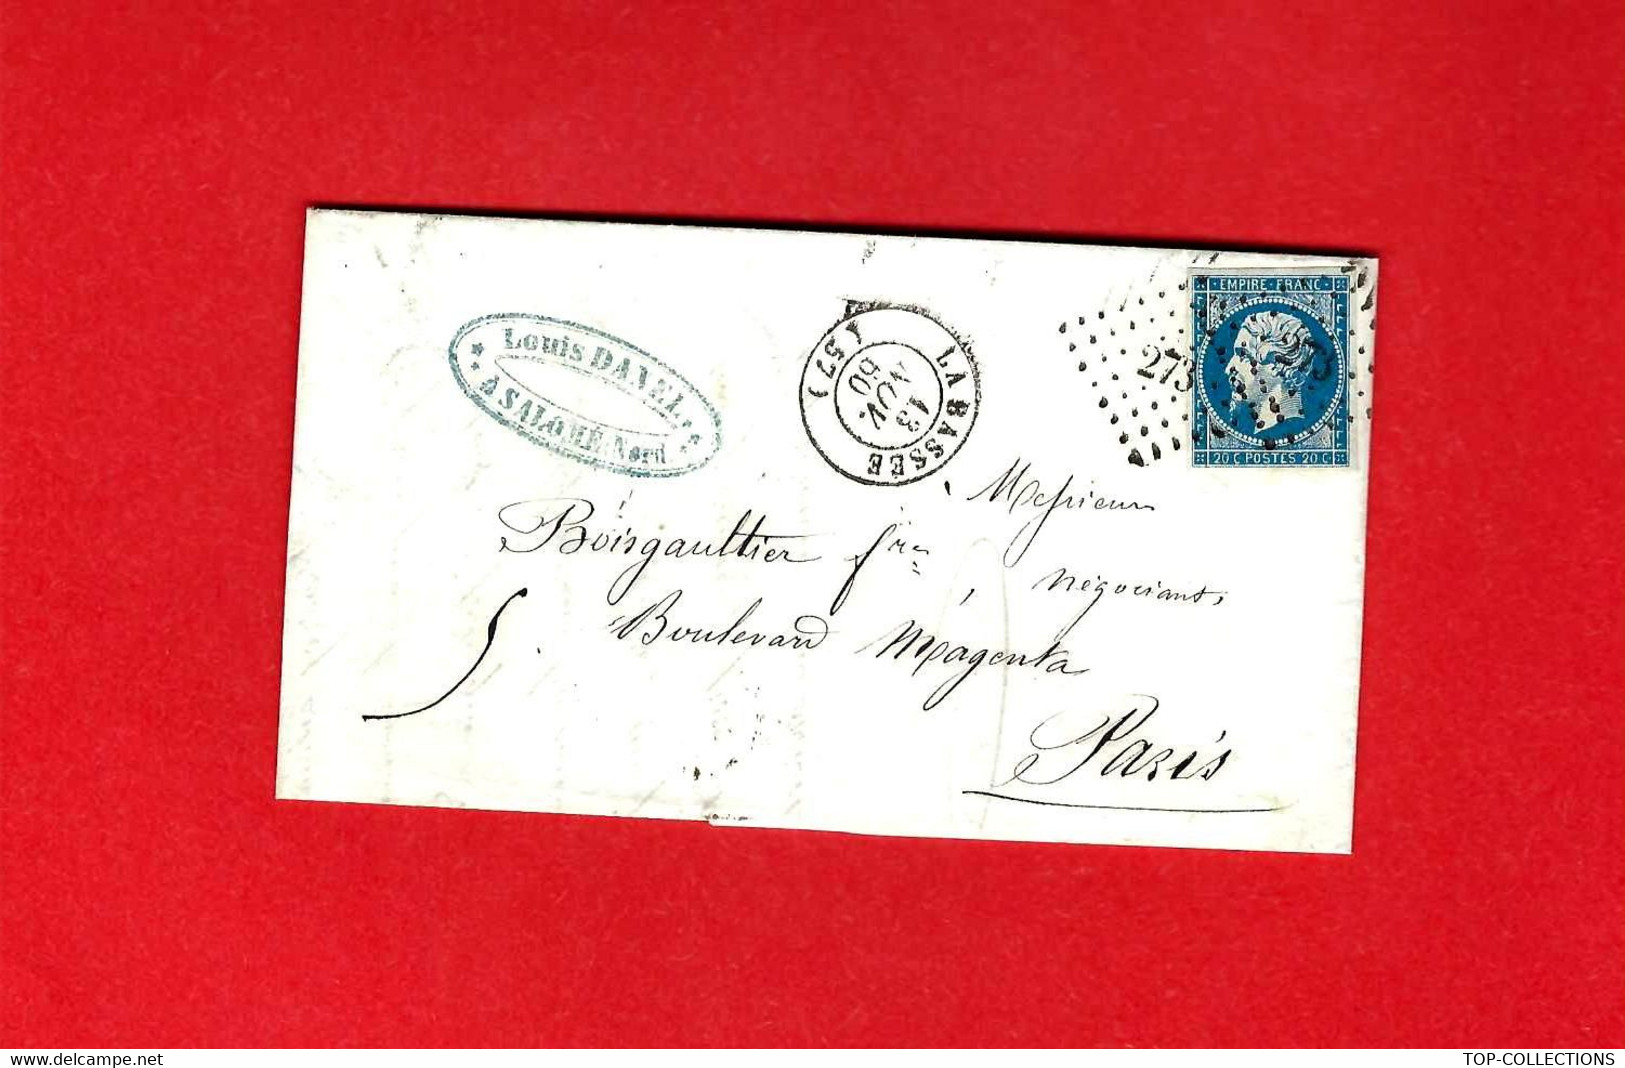 Louis DANEL
A SALOMÉ Nord
LA BASSÉE
13
NOV.
60
(57)
273 273
EMPIRE · FRANC ·
20 C POSTES 20 C
Messieurs
Boisgaultier fres
négociants,
Boulevard Magenta
Paris
TOP-COLLECTIONS